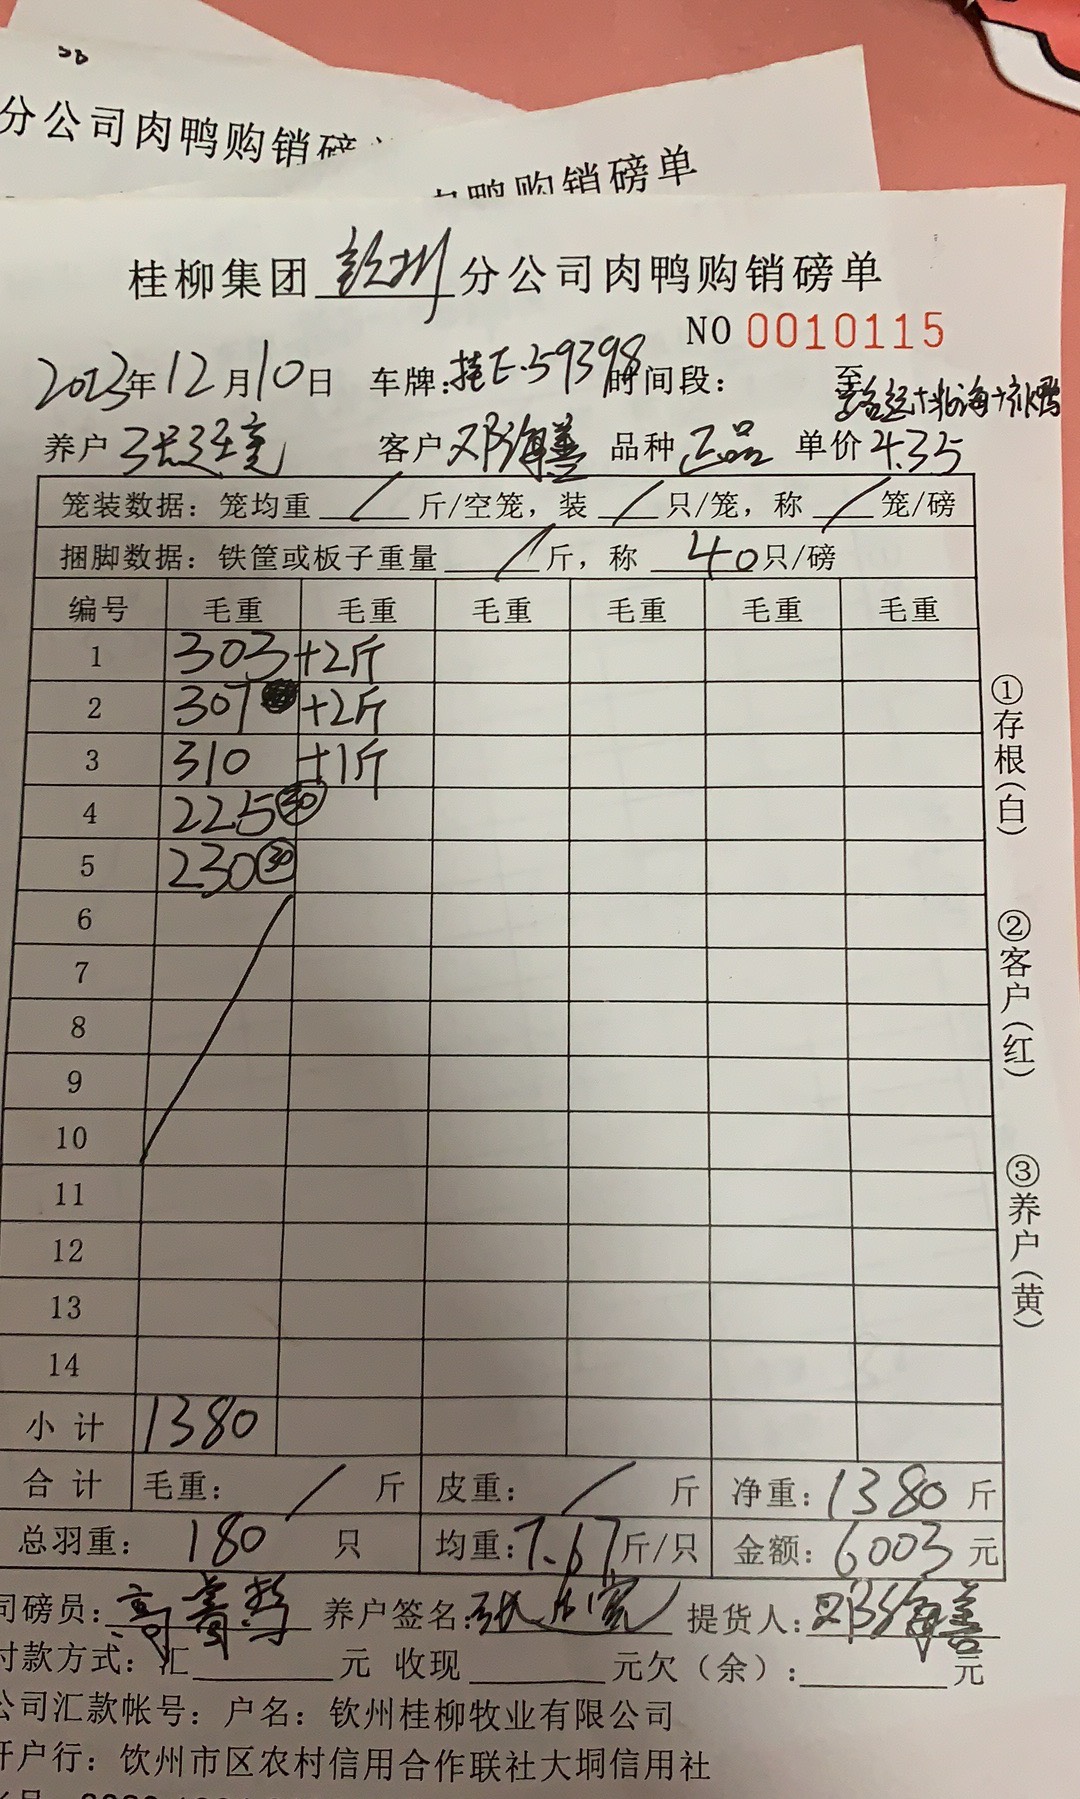 分公司肉鸭购销磅
肉鸭购销磅单
桂柳集团 钦州 分公司肉鸭购销磅单
NO 0010115
2023年12月10日 车牌:桂E.59398 时间段: 至
养户 客户 邓海善 品种 正品 单价 4.35
笼装数据: 笼均重 / 斤/空笼, 装 / 只/笼, 称 / 笼/磅
捆脚数据: 铁筐或板子重量 / 斤, 称 40只/磅
编号 毛重 毛重 毛重 毛重 毛重 毛重
1 303 +2斤
2 307 +2斤
3 310 +1斤
4 225 ㉚
5 230 ㉚
6
7
8
9
10
11
12
13
14
小计 1380
合计 毛重: / 斤 皮重: / 斤 净重: 1380 斤
总羽重: 180 只 均重: 7.67 斤/只 金额: 6003 元
司磅员: 养户签名: 提货人: 邓海善
付款方式: 汇 元 收现 元欠(余): 元
公司汇款帐号: 户名: 钦州桂柳牧业有限公司
开户行: 钦州市区农村信用合作联社大垌信用社
①存根(白)
②客户(红)
③养户(黄)